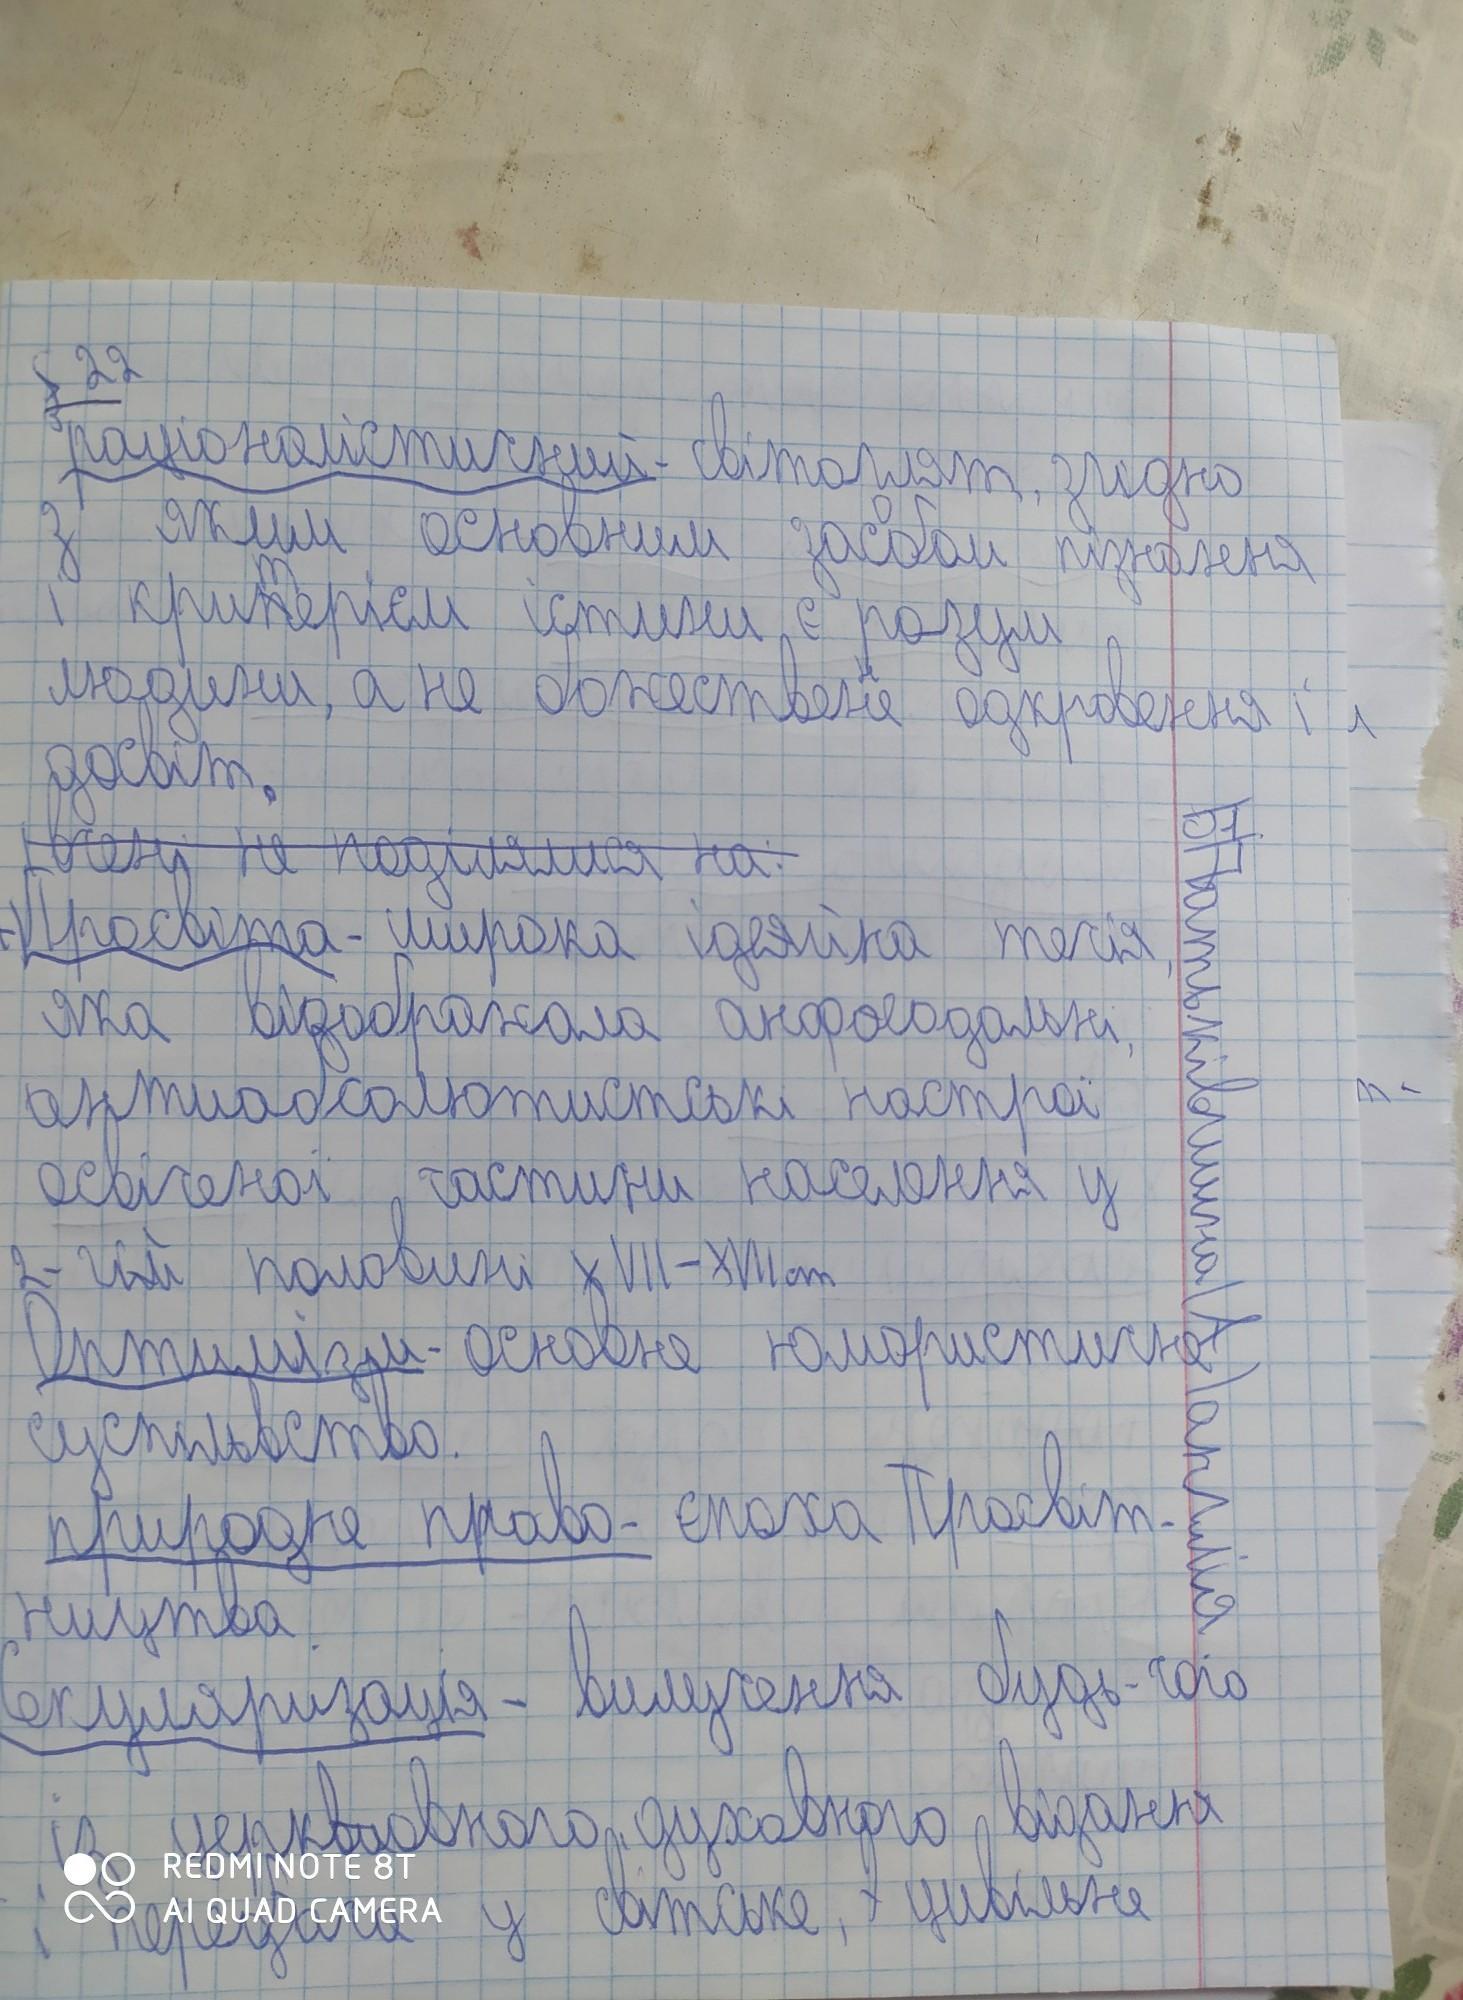 § 22
раціоналістичний - світогляд, згідно
з яким основним засобом пізнання
і критерієм істини є розум
людини, а не божествене одкровення і
досвіт.
вчені не поділялися на:
Просвіта - широка ідейна течія,
яка відображала анфоеодальні,
антиабсолютистські настрої
освіченої частини населення у
2-гій половині XVII-XVIII ст
Оптимізм - основне юмористичне
суспільство.
природне право - епоха Просвіт-
ництва.
Секуляризація - вилучення будь-чого
із церковного, духовного відання
і передача у світське, цивільне
Батьківщина Англія
REDMI NOTE 8T
AI QUAD CAMERA